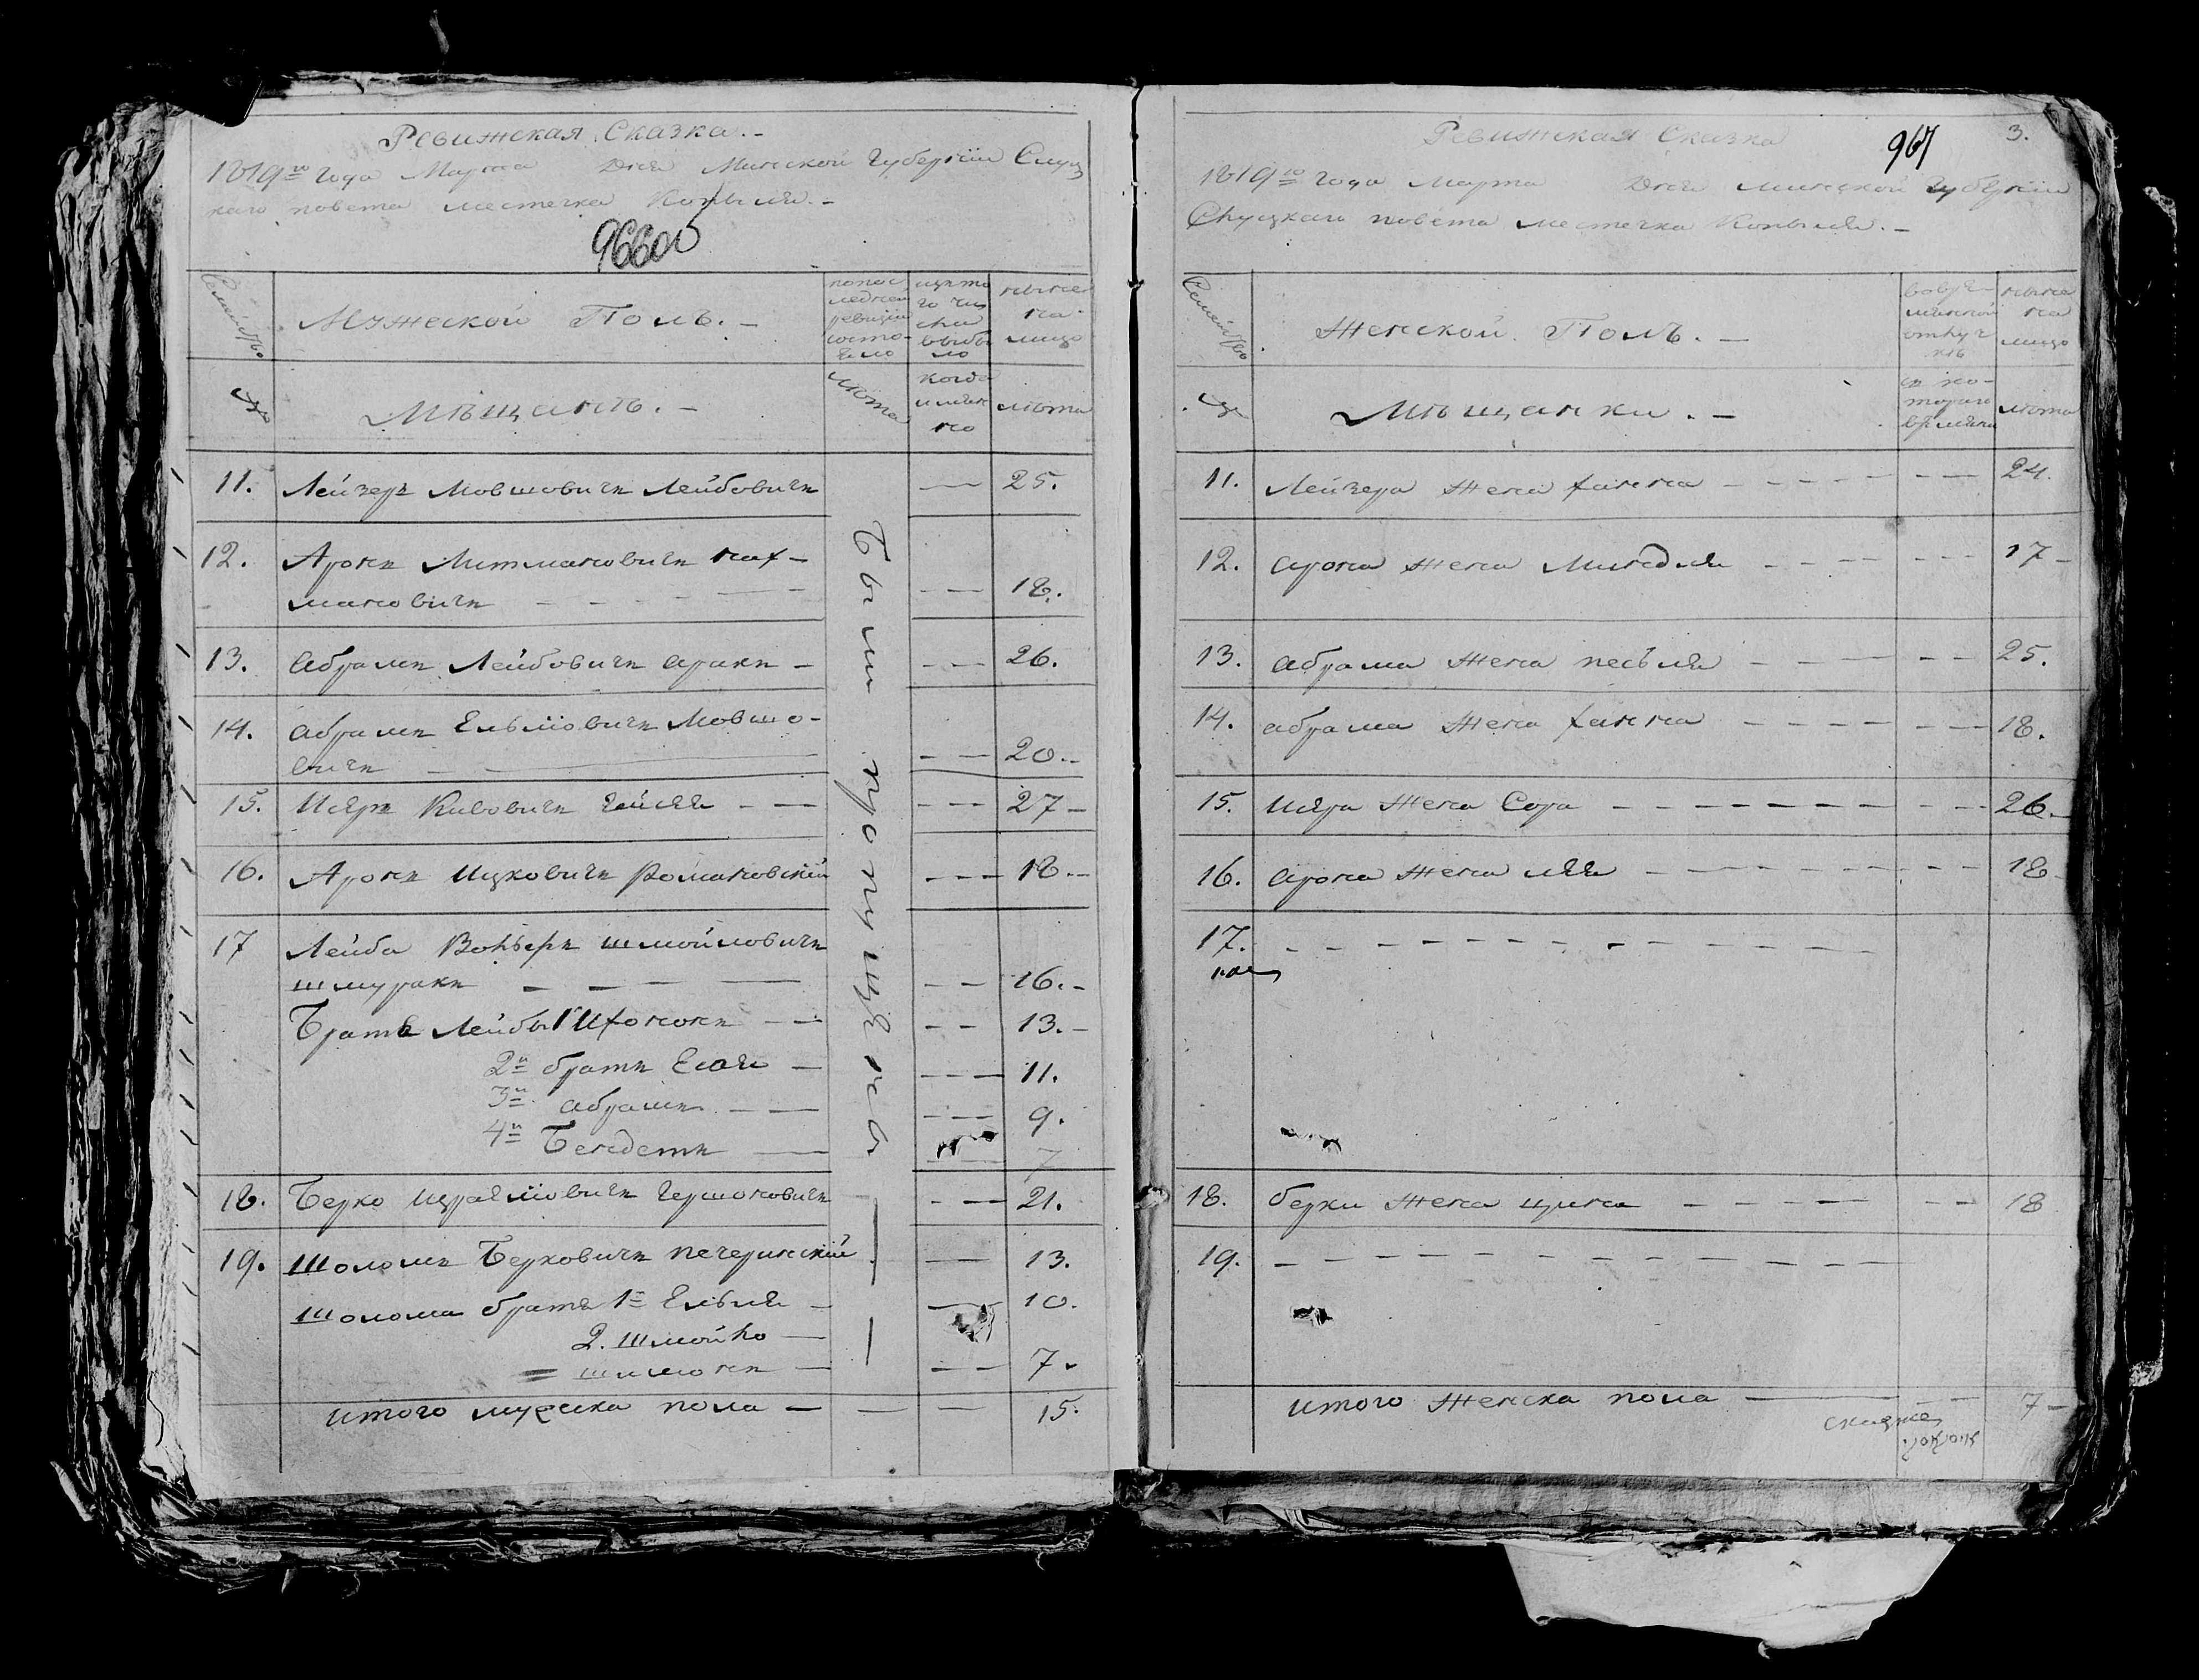 Ревижская Сказка. -
1819го года Марта Дня Минской Губернїи Слуц
каго повета местечка Копыля. -
966об
Семейство
Мужеской Полъ. -
попос
ледней
ревизїи
состо-
яло
изъто
го чи
сла
выбы
ло
ныне
на
лицо
№
Мѣщанъ. -
лѣта
когда
имян
но
лѣта
11. Лейзеръ Мовшовичъ Лейбовичъ — 25.
12. Аронъ Литмановичъ нах-
мановичъ — 18.
13. абрамъ Лейбовичъ аракъ — 26.
14. абрамъ Ельїовичъ Мовшо-
вичъ — 20.
15. Исеръ Кивовичъ — 27
16. Аронъ Ицковичъ Романовскїй — 18
17 Лейба Вольфъ шмойловичъ
шмуракъ — 16.
Братъ Лейбы 1й Хононъ — 13.
2й братъ Есле — 11.
3й абрамъ — 9.
4й Бендетъ — 7
18. Берко Израилїовичъ гершоновичъ — 21.
19. Шоломъ Берковичъ печеринскїй — 13.
Шолома братъ 1й Ельля — 10.
2. Шмойло —
шимонъ — 7
итого мужска пола — 15.
Были пропущены
Ревижская Сказка
967
3.
1819го года марта Дня минской Губернїи
Слуцкаго повета местечка Копыля. -
Семейство
Женской Полъ. -
вовре-
мянной
отлуч
кѣ
ныне
на
лицо
№
Мѣщанки. -
съ ко-
тораго
времяни
лѣта
11. Лейзера жена ханна — 24.
12. арона жена Миндля — 17
13. абрама жена песля — 25.
14. абрама жена ханна — 18.
15. исера жена Сора — 26.
16. арона жена лея — 18
17.
18. берки жена црина — 18
19.
итого женска пола — 7